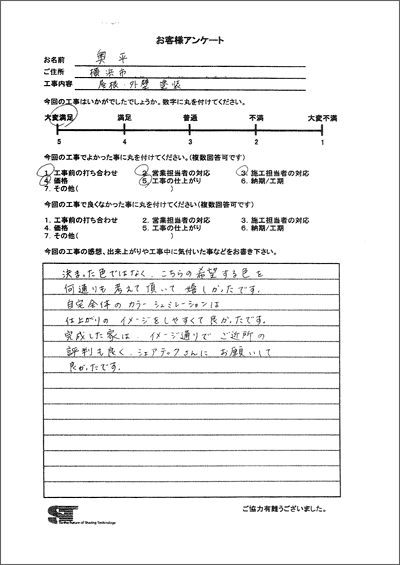 お客様アンケート
お名前 奥平
ご住所 横浜市
工事内容 屋根・外壁 塗装
今回の工事はいかがでしたでしょうか。数字に丸を付けてください。
大変満足 満足 普通 不満 大変不満
5 4 3 2 1
今回の工事でよかった事に丸を付けてください。(複数回答可です)
1. 工事前の打ち合わせ 2. 営業担当者の対応 3. 施工担当者の対応
4. 価格 5. 工事の仕上がり 6. 納期/工期
7. その他( )
今回の工事で良くなかった事に丸を付けてください(複数回答可です)
1. 工事前の打ち合わせ 2. 営業担当者の対応 3. 施工担当者の対応
4. 価格 5. 工事の仕上がり 6. 納期/工期
7. その他( )
今回の工事の感想、出来上がりや工事中に気付いた事などをお書き下さい。
決まった色ではなく、こちらの希望する色を
何通りも考えて頂いて 嬉しかったです。
自宅全体の カラーシュミレーションは
仕上がりの イメージをしやすくて良かったです。
完成した家は、イメージ通りで ご近所の
評判も良く、シェアテックさんに お願いして
良かったです。
for the Future of Sharing Technology
ご協力有難うございました。